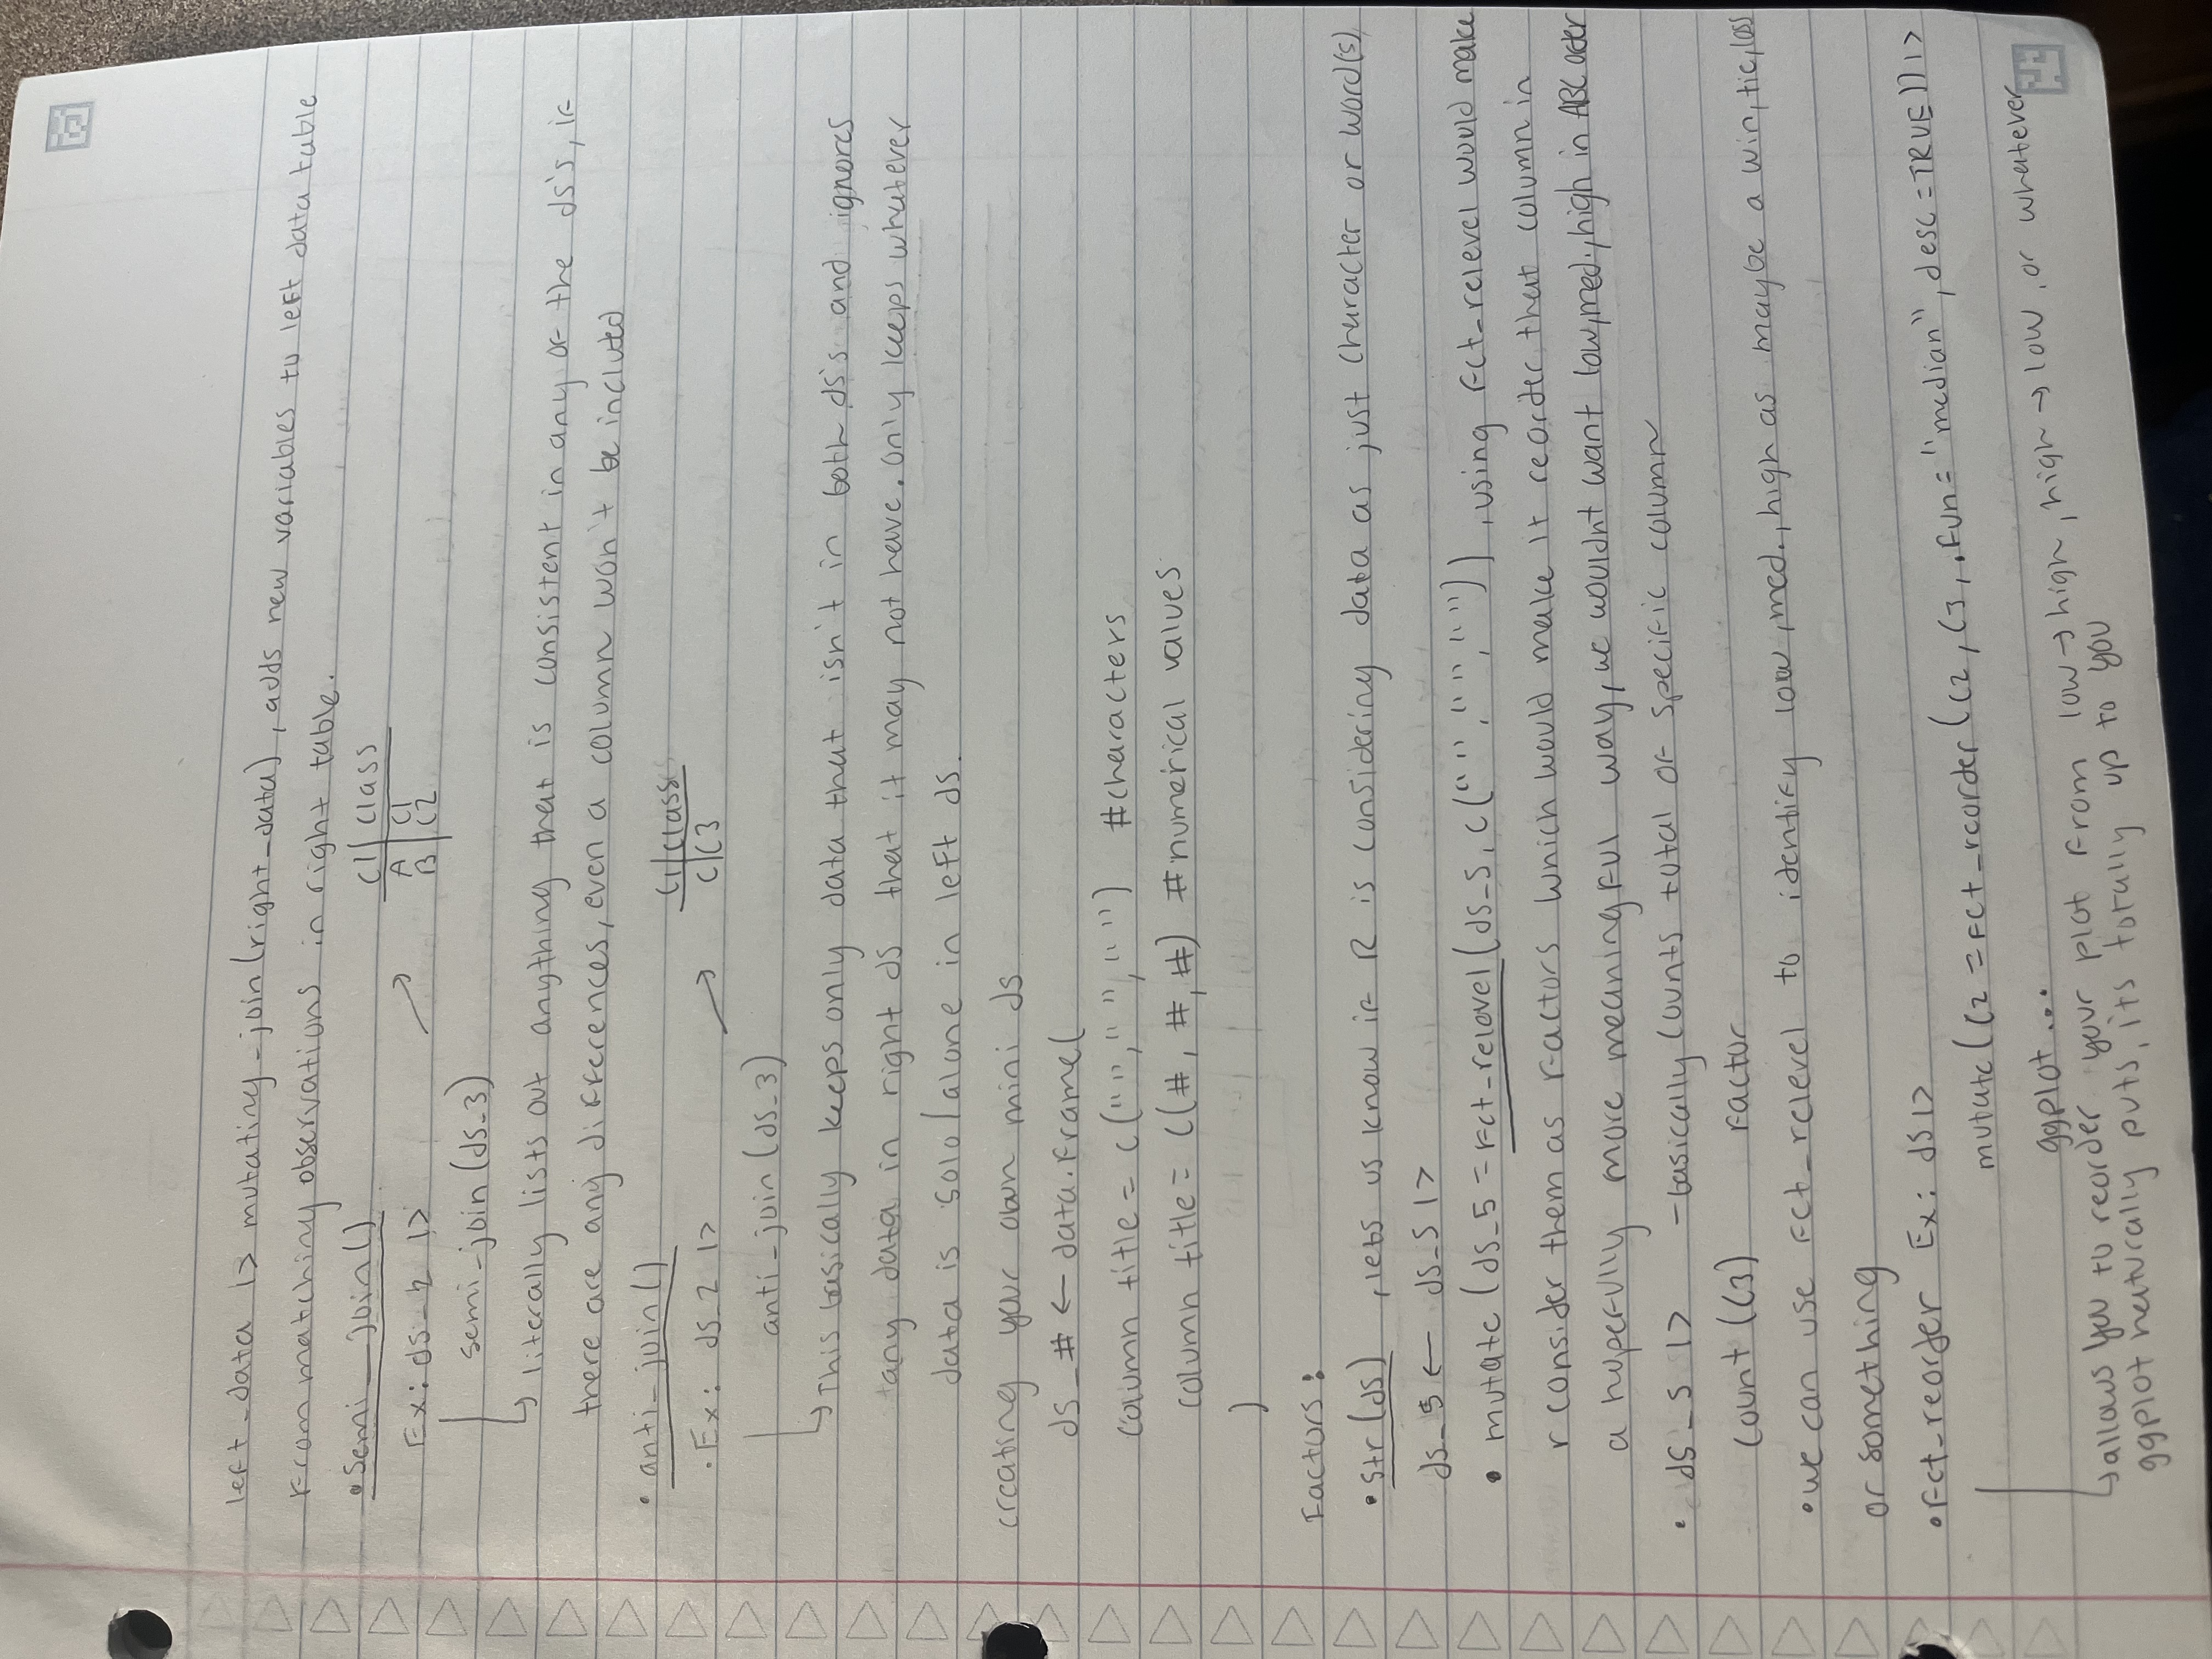 left_data |> mutating_join(right_data), adds new variables to left data table
from matching observations in right table.
• semi_join()
C1 | Class
A | C1
B | C2
Ex: ds_2 |>
semi_join(ds_3)
↳ literally lists out anything that is consistent in any of the ds's, if
there are any differences, even a column won't be included
• anti_join()
C1 | class
C | C3
• Ex: ds_2 |>
anti_join(ds_3)
↳ This basically keeps only data that isn't in both ds's and ignores
any data in right ds that it may not have. only keeps whatever
data is solo/alone in left ds.
creating your own mini ds
ds_# ← data.frame(
column title = c("", "", "") #characters
column title = c(#, #, #) #numerical values
)
Factors:
• str(ds) , lets us know if R is considering data as just character or word(s)
ds_5 ← ds_5 |>
• mutate (ds_5 = fct_relevel(ds_5, c("", "", "")) , using fct_relevel would make
r consider them as factors which would make it reorder that column in
a hopefully more meaningful way, we wouldnt want low, med., high in ABC order
• ds_5 |> - basically counts total of specific column
count (C3) factor
• we can use fct_relevel to identify low, med., high as maybe a win, tie, loss
or something
• fct_reorder Ex: ds |>
mutate (C2 = fct_reorder (C2, C3, .fun = "median", desc = TRUE)) |>
ggplot...
↳ allows you to reorder your plot from low → high, high → low, or whatever
ggplot naturally puts, its totally up to you